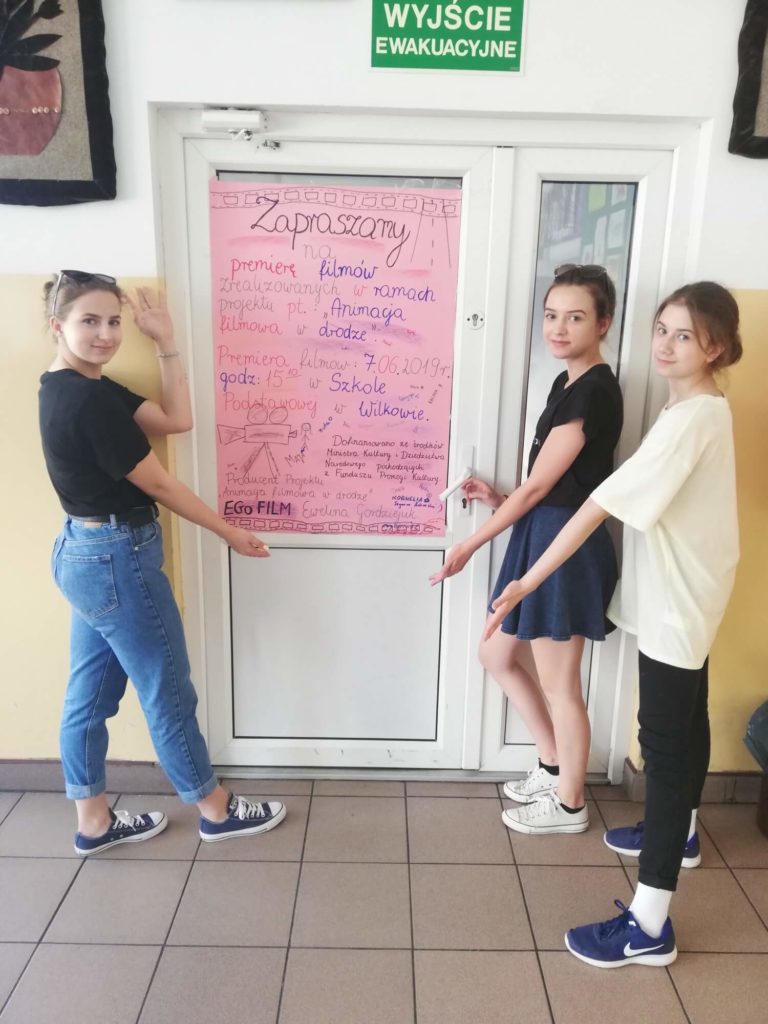 WYJŚCIE
EWAKUACYJNE
Zapraszamy
na
premierę filmów
zrealizowanych w ramach
projektu pt.: „Animacja
filmowa w drodze".
Premiera filmów: 7.06.2019r.
godz: 15¹⁰ w Szkole
Podstawowej w Wilkowie.
Dofinansowano ze środków
Ministra Kultury i Dziedzictwa
Narodowego pochodzących
z Funduszu Promocji Kultury.
Producent Projektu
„Animacja filmowa w drodze"
KORNELIA
EGo FILM: Ewelina Gordziejuk